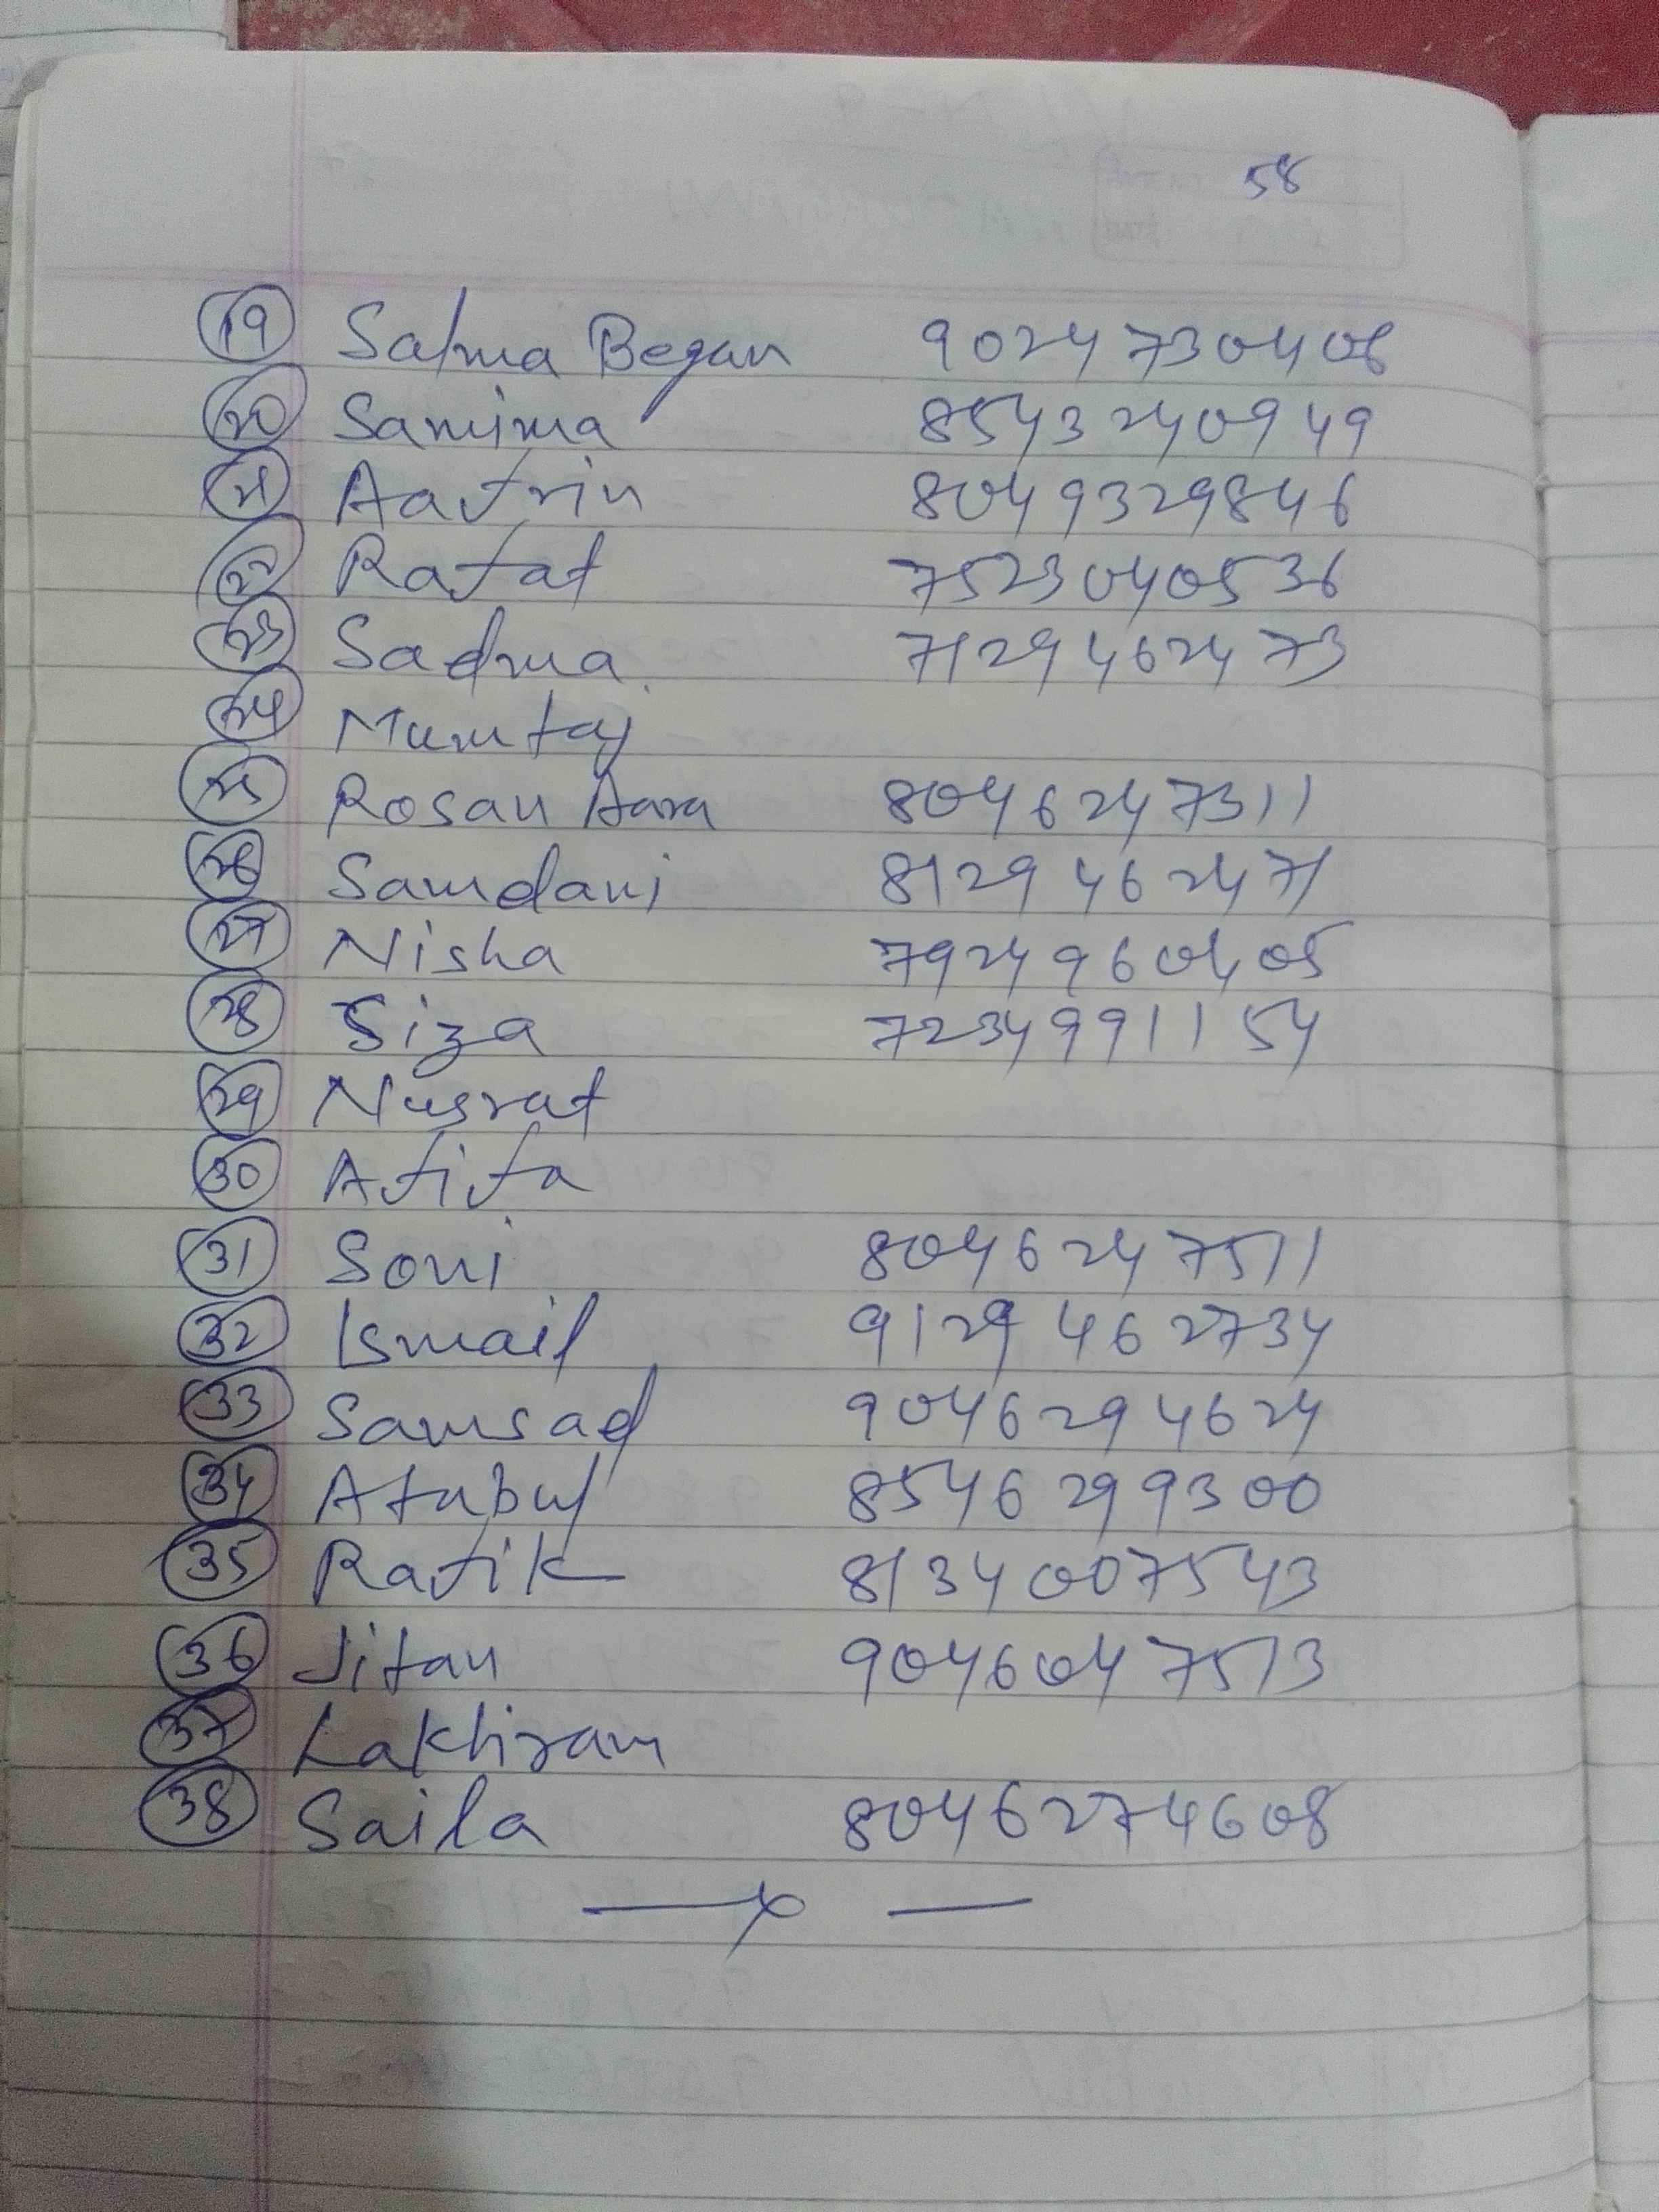 58
19 Salma Began 9024730408
20 Samima 8543240949
21 Aafrin 8049329846
22 Rafat 7523040536
23 Sadma 7129462473
24 Mumtaj
25 Rosan Aara 8046247311
26 Samdani 8129462471
27 Nisha 7924960405
28 Siza 7234991154
29 Nusrat
30 Afifa
31 Soni 8046247511
32 Ismail 9129462734
33 Samsad 9046294624
34 Afabul 8546299300
35 Rafik 8134007543
36 Jifan 9046047513
37 Lakhiram
38 Saila 8046274608